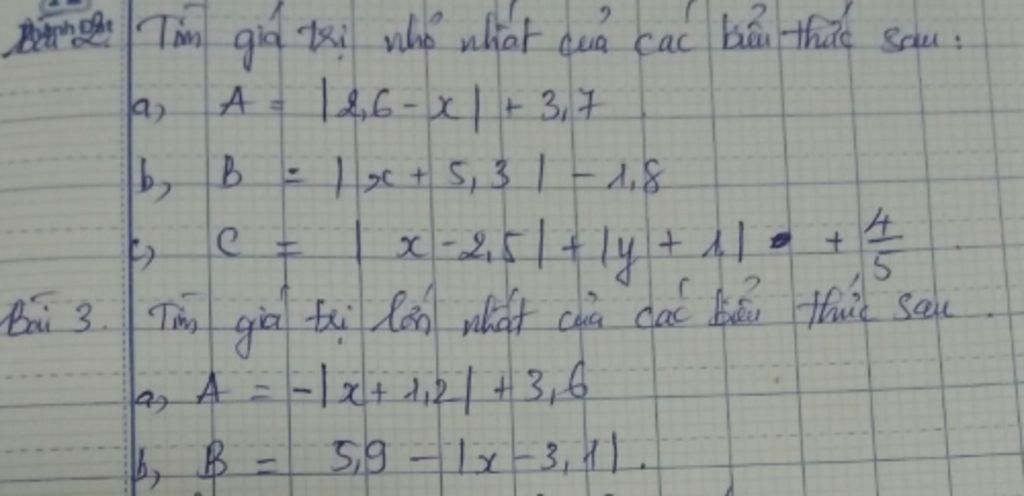 Bài 2. Tìm giá trị nhỏ nhất của các biểu thức sau :
a, A = |2,6 - x| + 3,7
b, B = | x + 5,3 | - 1,8
c, C = | x - 2,5| + |y + 1| + 4/5
Bài 3. Tìm giá trị lớn nhất của các biểu thức sau .
a, A = -|x + 1,2| + 3,6
b, B = 5,9 - |x - 3,1| .